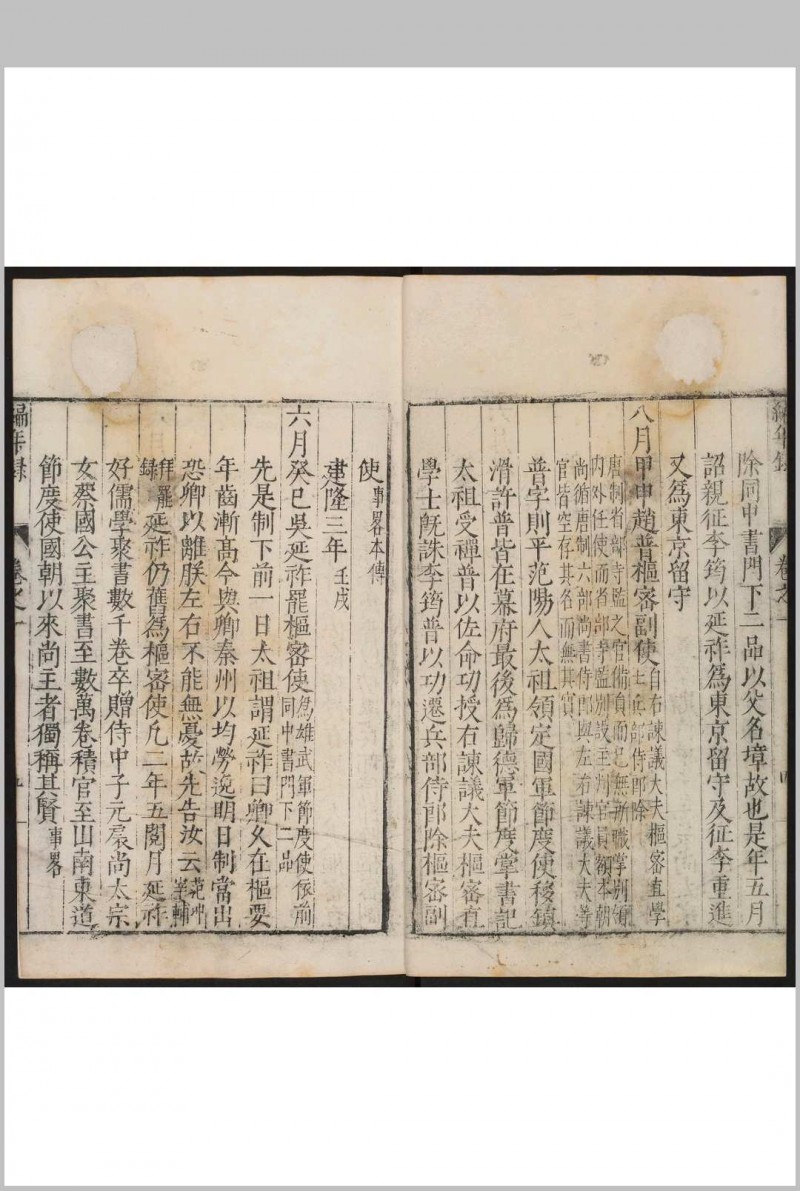 編年錄
卷之一
除同中書門下二品以父名璋故也是年五月
詔親征李筠以延祚爲東京留守及征李重進
又爲東京留守
八月甲申趙普樞密副使自右諫議大夫樞密直學
士兵部侍郎除
唐制省部寺監之官備員而已無所職掌別領
內外任使而省部寺監別設主判官員額本朝
尚循唐制六部尚書侍郎與左右諫議大夫等
官皆空存其名而無其實
普字則平范陽人太祖領定國軍節度使移鎮
滑許普皆在幕府最後爲歸德軍節度掌書記
太祖受禪普以佐命功授右諫議大夫樞密直
學士旣誅李筠普以功遷兵部侍郎除樞密副
使事畧本傳
建隆三年壬戌
六月癸巳吳延祚罷樞密使爲雄武軍節度使依前
同中書門下二品
先是制下前一日太祖謂延祚曰卿久在樞要
年齒漸高今與卿秦州以均勞逸明日制當出
恐卿以離朕左右不能無憂故先告汝云范冲
宰輔
拜罷
錄延祚仍舊爲樞密使凡二年五閱月延祚
好儒學聚書數千卷卒贈侍中子元扆尚太宗
女蔡國公主聚書至數萬卷積官至山南東道
節度使國朝以來尚主者獨稱其賢事畧
編年錄
卷之一